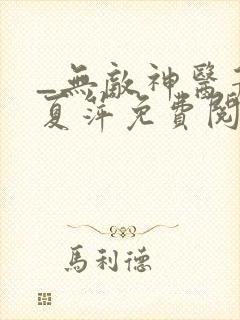 _無敵神醫
夏萍免費閱
馬利德